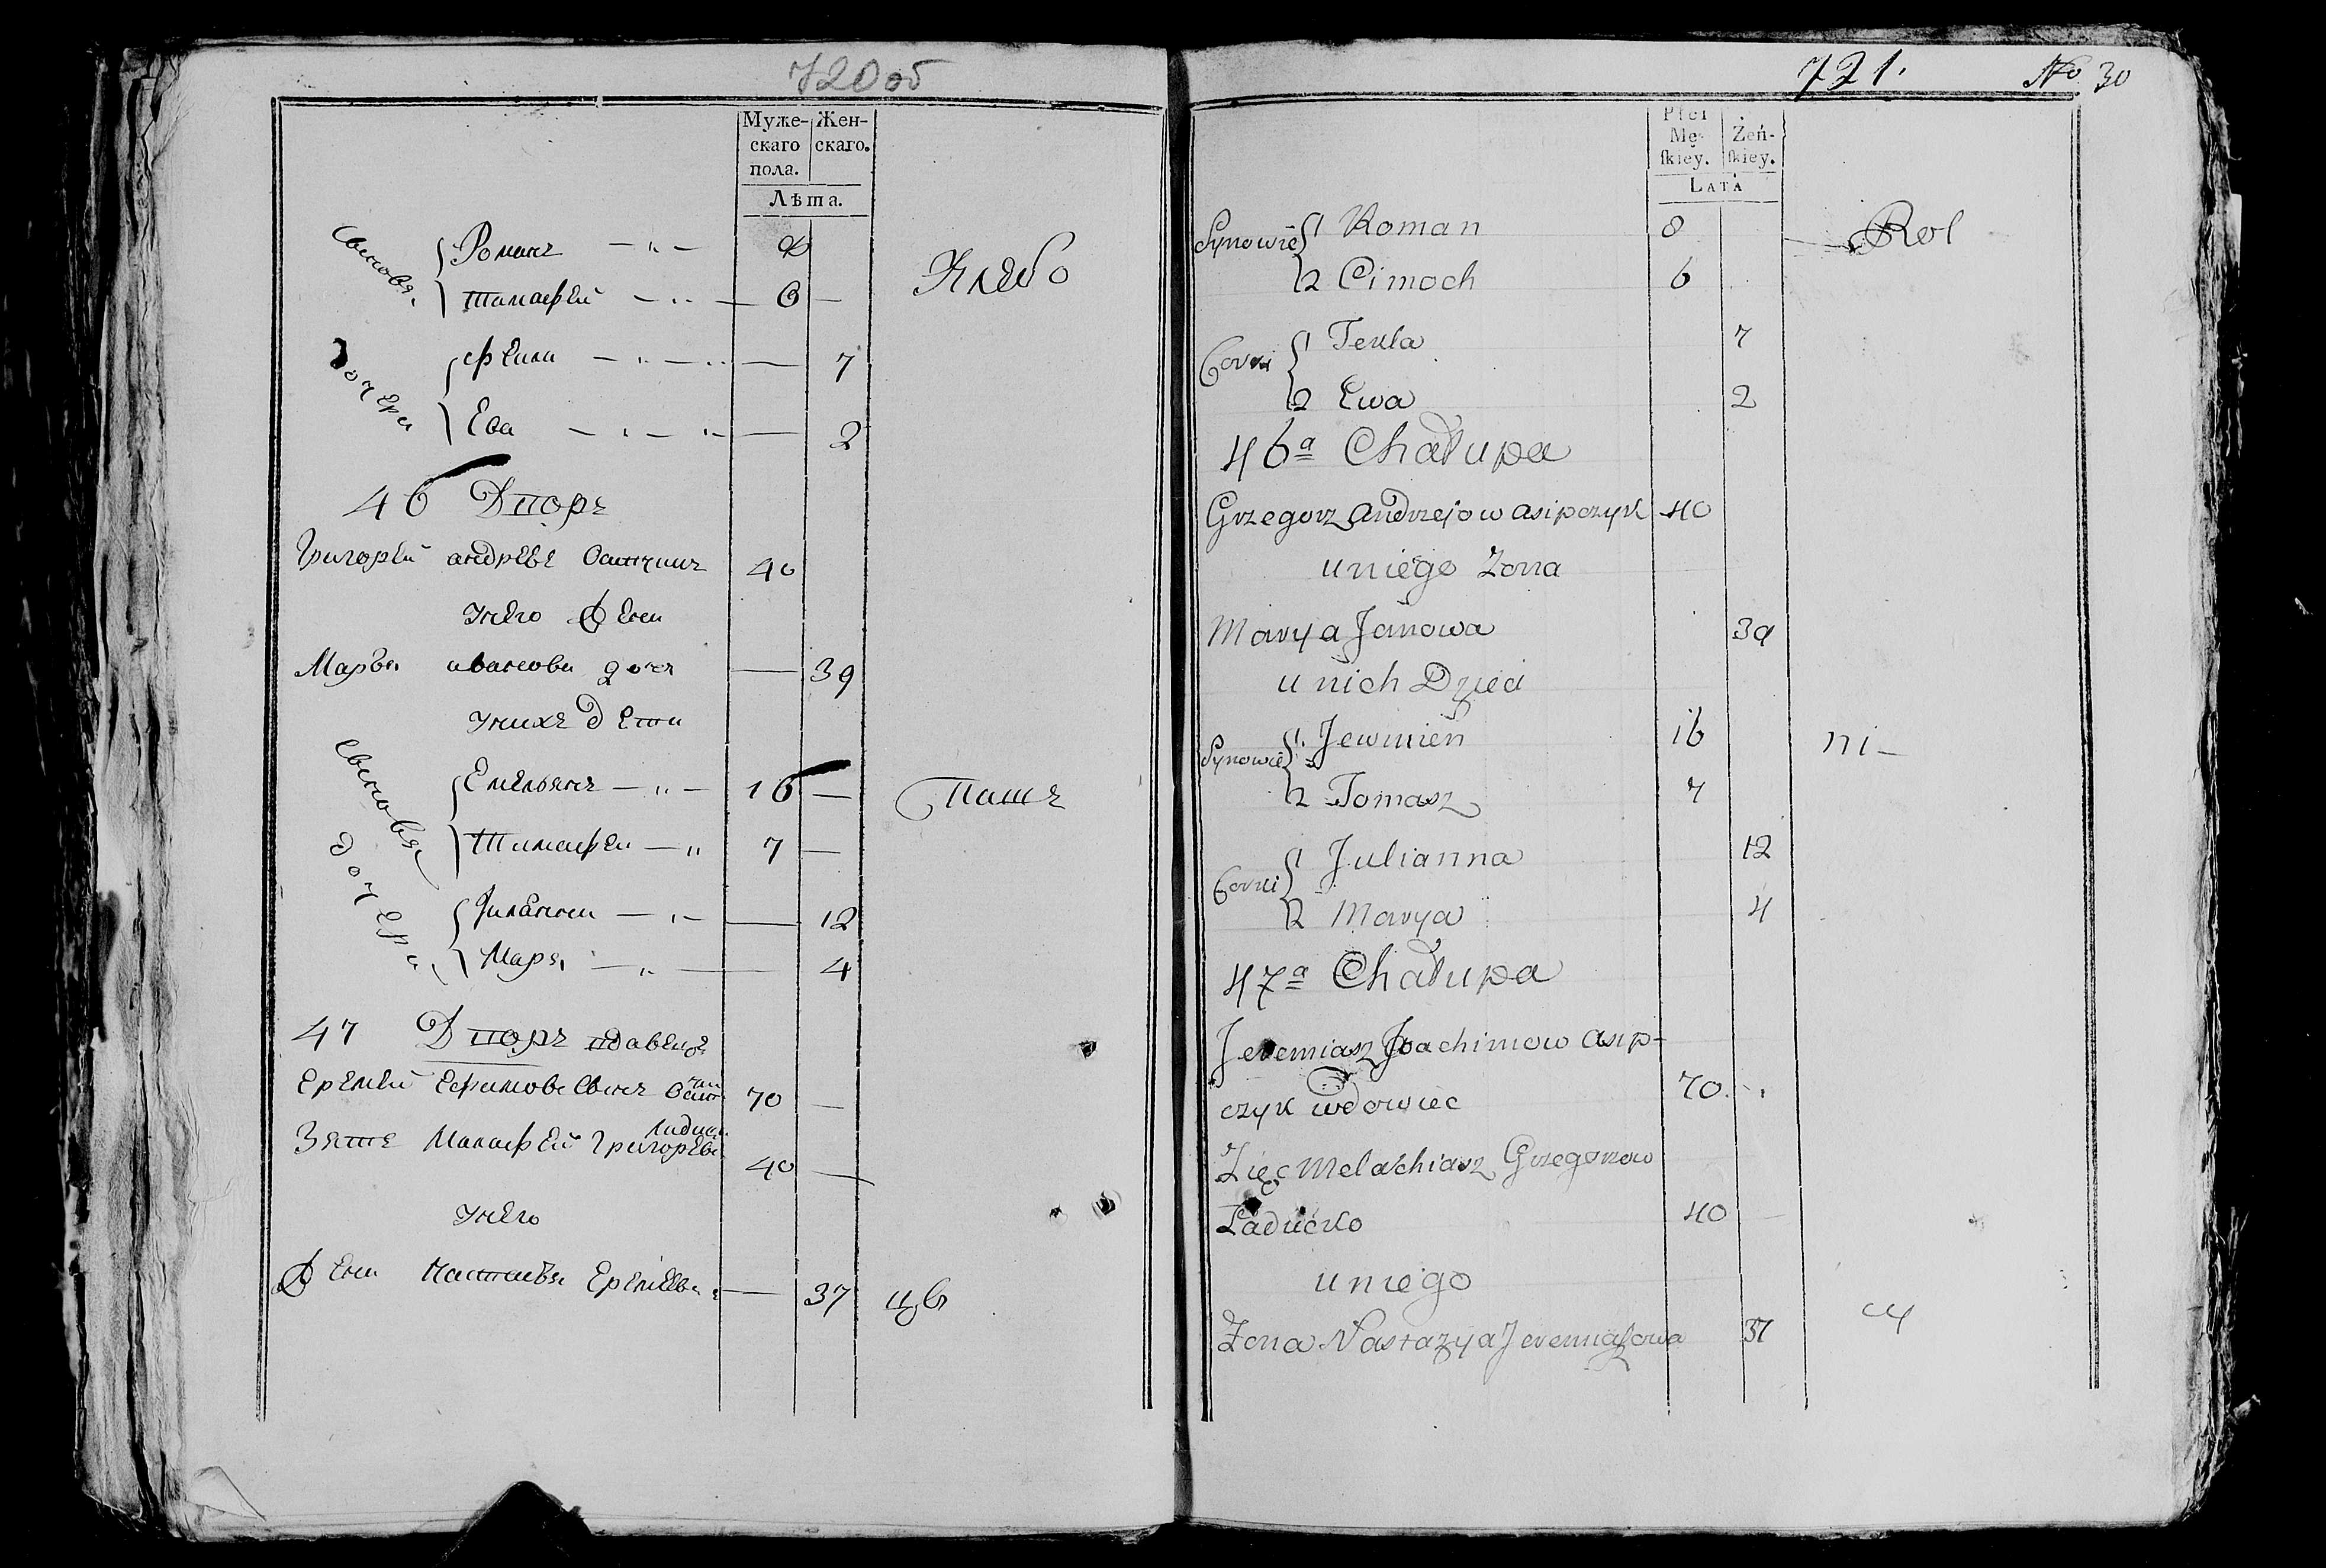 720об
Муже- Жен-
скаго скаго.
пола.
Лѣта.
Романъ — " —
Тимофей — " — 6 —
— " — " — 7
дочери
Ева — " — " — 2
46 Дворъ
Григорей андреевъ 40
унего Жена
Марья иванова дочь — 39
унихъ дети
Сыновья
Емельянъ — " — 16 —
Тимофеи — " 7 —
дочери
Юлианна — " — 12
Маря — " — 4
47 Дворъ вдавецъ
Еремей Ефимовъ Сынъ 70 —
Зять Малафей Григорьевъ 40 —
унего
Жена Настасья Еремеева — 37
721. No 30
Płci
Mę- Żeń-
skiey. skiey.
LATA
Synowie 1 Roman 8 Rol
2 Cimoch 6
Corki 1 Tekla 7
2 Ewa 2
46a Chałupa
Grzegorz Andrzejow Asipczyk 40
u niego Żona
Marya Janowa 39
u nich Dzieci
Synowie 1. Jewmien 16 ni-
2 Tomasz 7
Corki 1 Julianna 12
2 Marya 4
47a Chałupa
Jeremiasz Joachimow Asip-
czyk wdowiec 70.
Zięć Melachiasz Grzegorzow
Ładućko 40
u niego
Żona Nastazya Jeremiaszowa 37